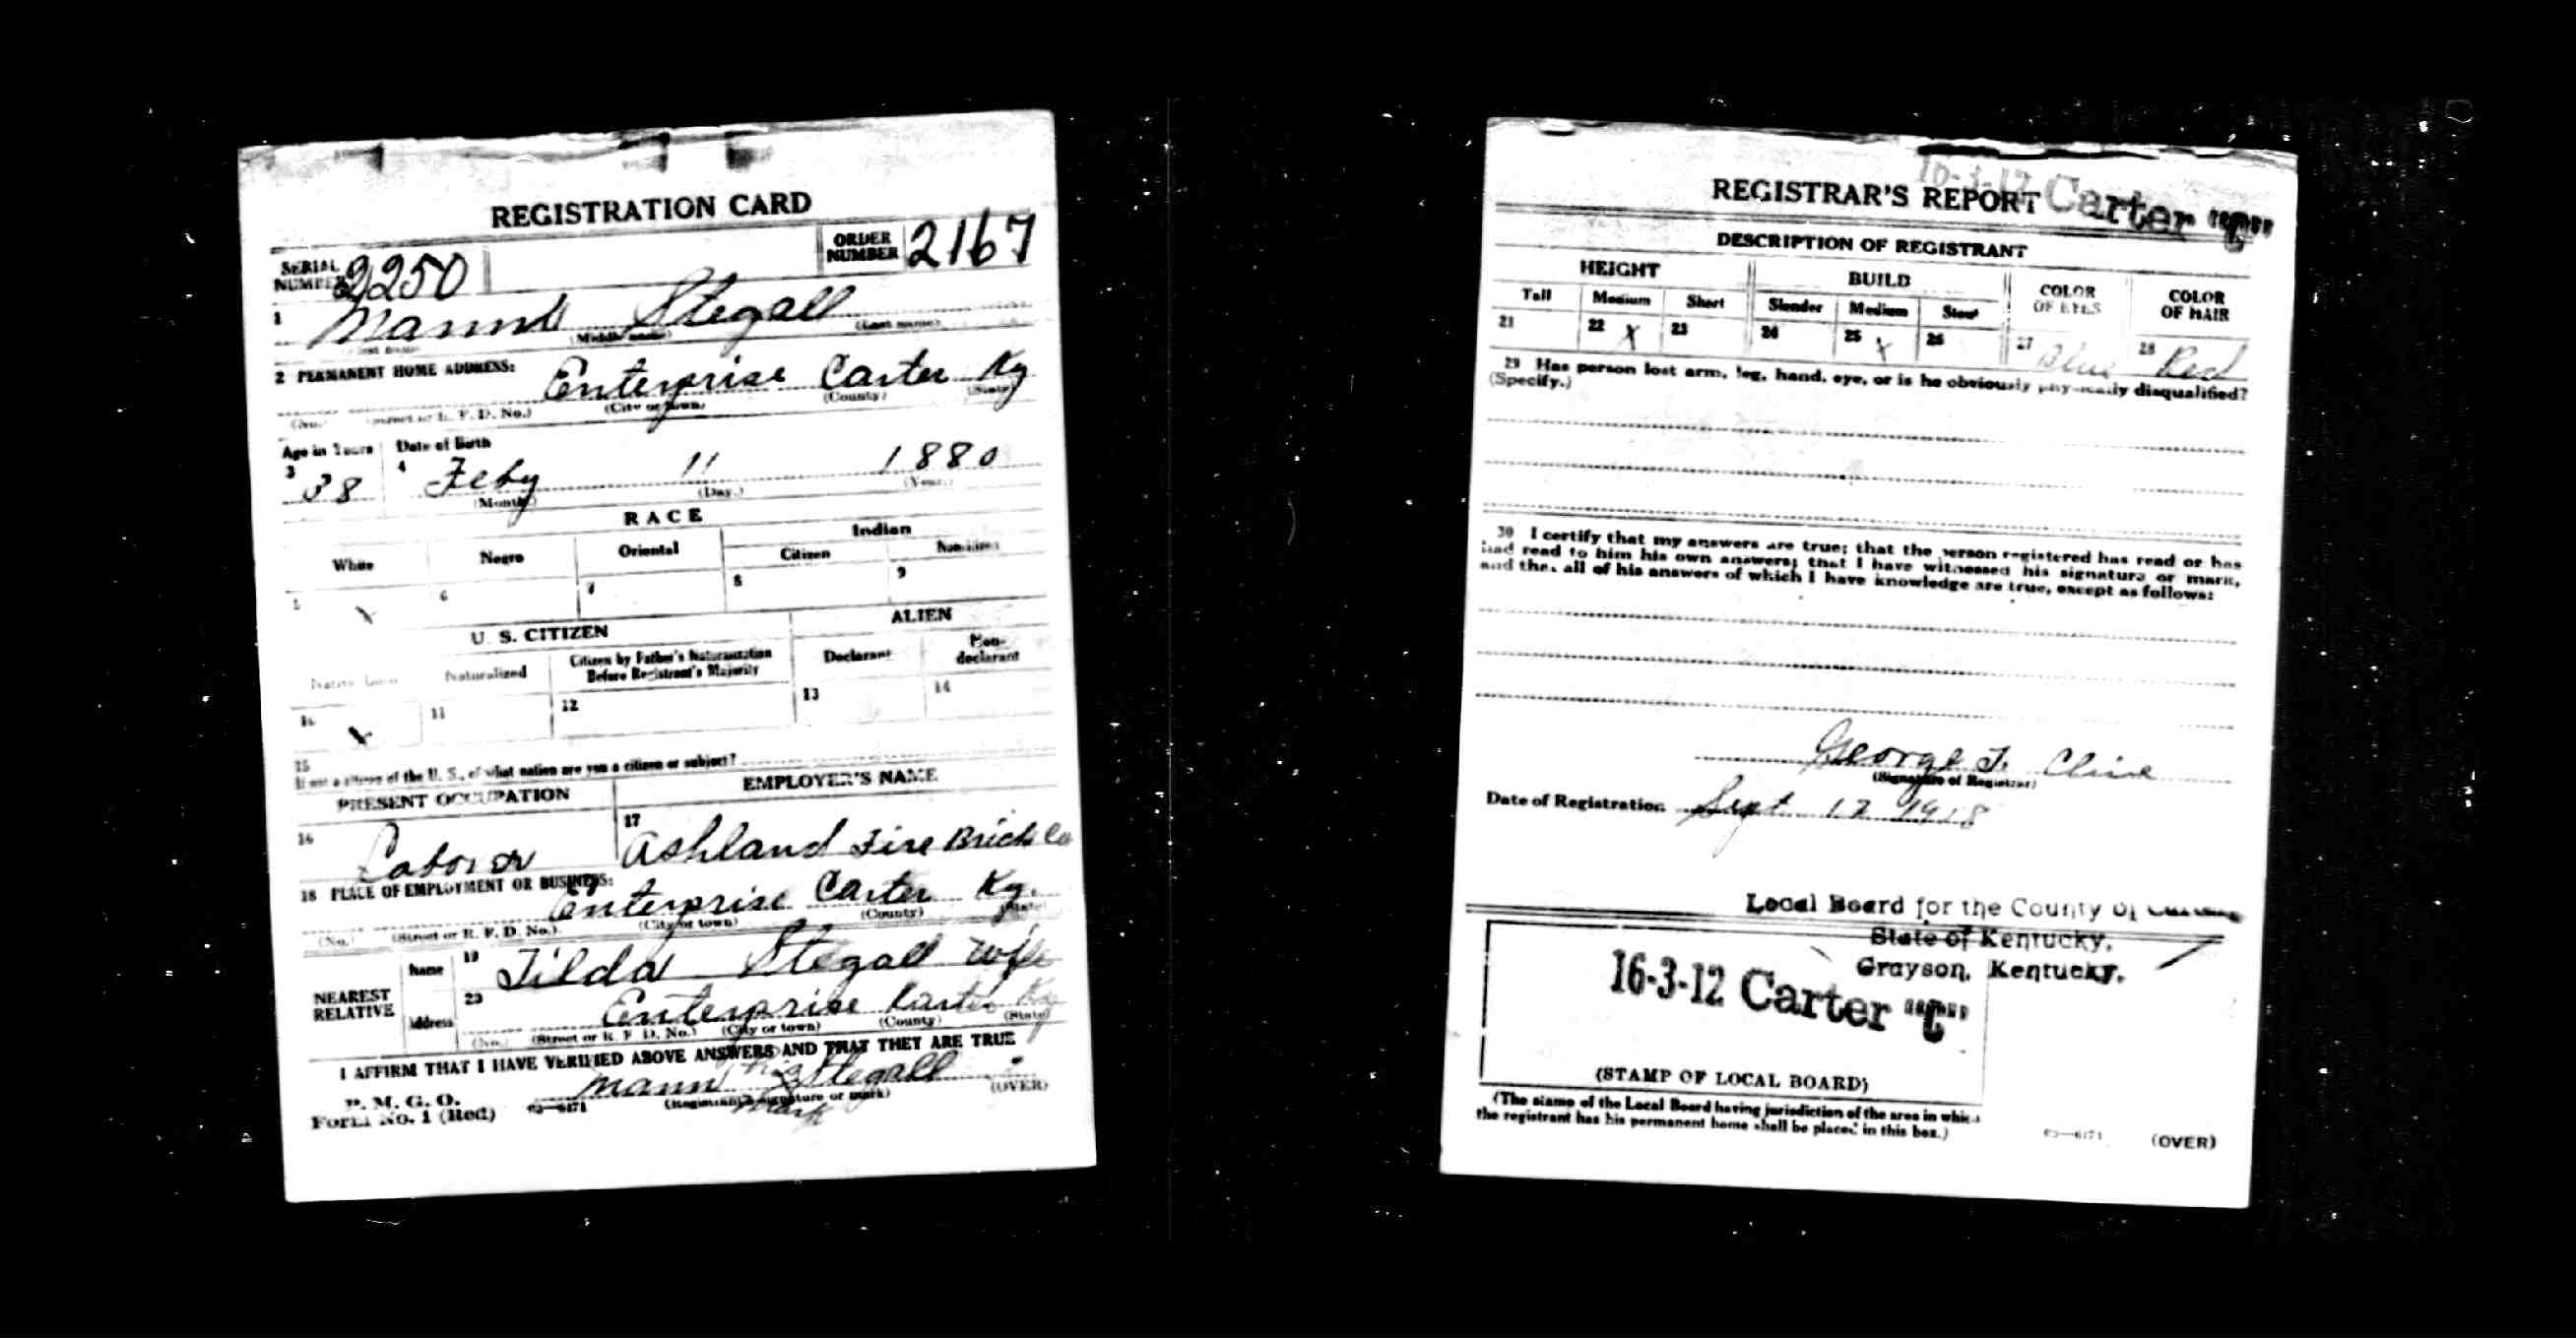 REGISTRATION CARD
SERIAL NUMBER 2250 ORDER NUMBER 2167
1 Mann Stegall
(Middle name) (Last name)
2 PERMANENT HOME ADDRESS: Enterprise Carter Ky
(No.) (Street or R. F. D. No.) (City or town) (County) (State)
Age in Years Date of Birth
3 38 4 Feby 11 1880
(Month) (Day.) (Year.)
RACE
White Negro Oriental Indian
Citizen Noncitizen
5 X 6 7 8 9
U. S. CITIZEN ALIEN
Native Born Naturalized Citizen by Father's Naturalization Before Registrant's Majority Declarant Non-declarant
10 X 11 12 13 14
15
If not a citizen of the U. S., of what nation are you a citizen or subject?
PRESENT OCCUPATION EMPLOYER'S NAME
16 Laborer 17 Ashland Fire Brick Co
18 PLACE OF EMPLOYMENT OR BUSINESS:
Enterprise Carter Ky.
(No.) (Street or R. F. D. No.) (City or town) (County) (State)
NEAREST RELATIVE Name 19 Tilda Stegall wife
Address 20 Enterprise Carter Ky
(No.) (Street or R. F. D. No.) (City or town) (County) (State)
I AFFIRM THAT I HAVE VERIFIED ABOVE ANSWERS AND THAT THEY ARE TRUE
P. M. G. O.
Form No. 1 (Red) 03—6171 Mann his X Stegall mark
(Registrant's signature or mark) (OVER)
16-3-12 Carter
REGISTRAR'S REPORT
DESCRIPTION OF REGISTRANT
HEIGHT BUILD COLOR OF EYES COLOR OF HAIR
Tall Medium Short Slender Medium Stout
21 22 X 23 24 25 X 26 27 Blue 28 Red
29 Has person lost arm, leg, hand, eye, or is he obviously physically disqualified?
(Specify.)
30 I certify that my answers are true; that the person registered has read or has
had read to him his own answers; that I have witnessed his signature or mark,
and that all of his answers of which I have knowledge are true, except as follows:
George F. Cline
(Signature of Registrar)
Date of Registration Sept 12 1918
Local Board for the County of
State of Kentucky,
Grayson, Kentucky.
16-3-12 Carter
(STAMP OF LOCAL BOARD)
(The stamp of the Local Board having jurisdiction of the area in which
the registrant has his permanent home shall be placed in this box.)
03—6171 (OVER)